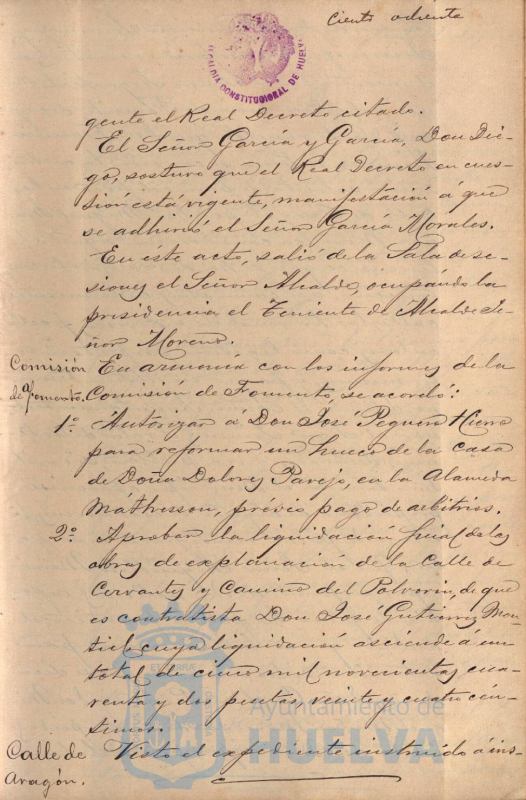 Ciento ochenta
ALCALDIA CONSTITUCIONAL DE HUELVA
gente el Real Decreto citado.
El Señor García y García, Don Die-
go, sostuvo que el Real Decreto en cues-
sión está vigente, manifestación á que
se adhirió el Señor García Morales.
En éste acto, salió de la Sala de se-
siones el Señor Alcalde, ocupando la
presidencia el Teniente de Alcalde Se-
ñor Moreno.
Comisión
de Fomento.
En armonía con los informes de la
Comisión de Fomento, se acordó:
1º Autorizar á Don José Peguero Hierro
para reformar un hueco de la casa
de Doña Dolores Parejo, en la Alameda
Máthesson, prévio pago de arbitrios.
2º Aprobar la liquidación final de las
obras de explanación de la calle de
Cervantes y Camino del Polvorín, de que
es contratista Don José Gutierrez Mon-
tiel, cuya liquidación asciende á un
total de cinco mil novecientas cua-
renta y dos pesetas, veinte y cuatro cén-
timos.
Calle de
Aragón.
Visto el expediente instruido á ins-
Ayuntamiento de
HUELVA